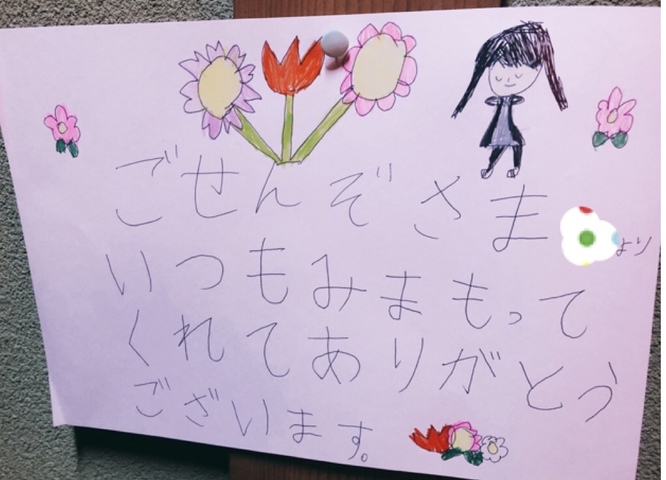 ごせんぞさま
より
いつもみまもって
くれてありがとう
ございます。